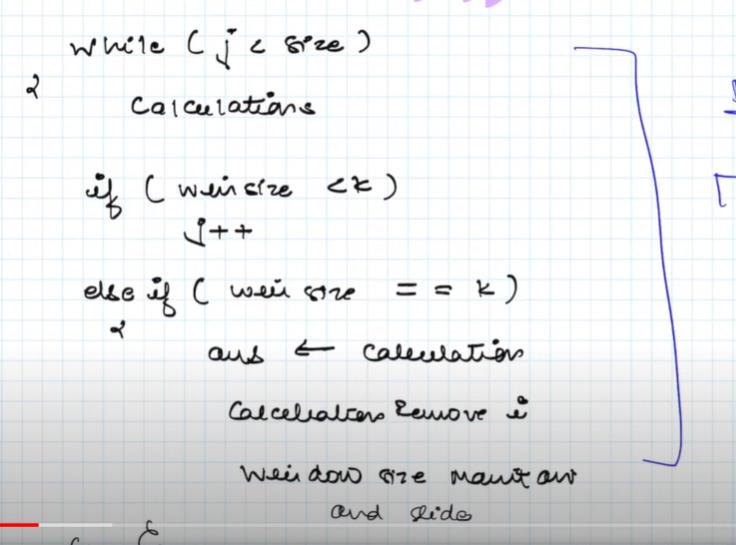 while ( j < size )
{
Calculations
if ( win size < k )
j++
else if ( win size = = k )
{
ans ← calculation
Calculation Remove i
Window size maintain
and slide